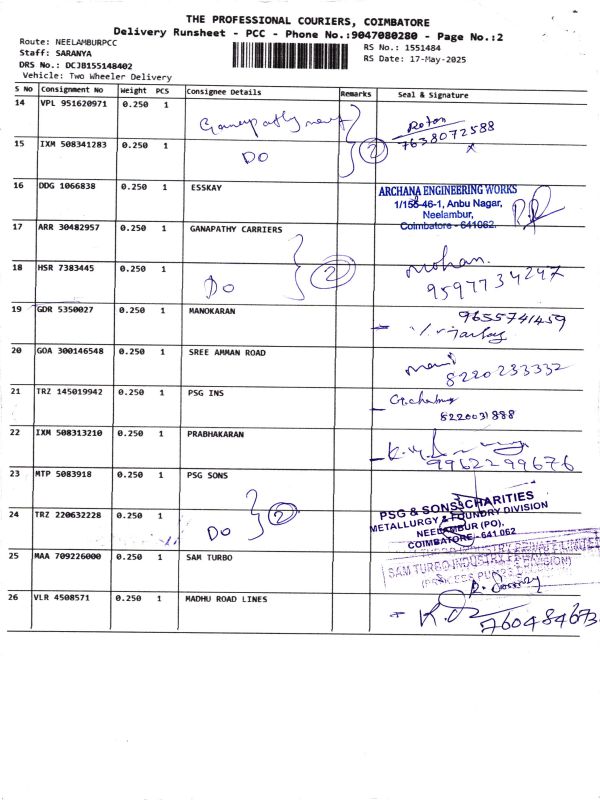 THE PROFESSIONAL COURIERS, COIMBATORE
Delivery Runsheet - PCC - Phone No.:9047080280 - Page No.:2
Route: NEELAMBURPCC
Staff: SARANYA
DRS No.: DCJB155148402
Vehicle: Two Wheeler Delivery
RS No.: 1551484
RS Date: 17-May-2025
S No Consignment No Weight PCS Consignee Details Remarks Seal & Signature
14 VPL 951620971 0.250 1 7638072588
15 IXM 508341283 0.250 1 DO 2
16 DDG 1066838 0.250 1 ESSKAY
ARCHANA ENGINEERING WORKS
1/155-46-1, Anbu Nagar,
Neelambur,
Coimbatore - 641062.
17 ARR 30482957 0.250 1 GANAPATHY CARRIERS
18 HSR 7383445 0.250 1 DO 2 Mohan.
9597734247
19 GDR 5350027 0.250 1 MANOKARAN 9655741459
20 GOA 300146548 0.250 1 SREE AMMAN ROAD Mani
8220233332
21 TRZ 145019942 0.250 1 PSG INS
8220031888
22 IXM 508313210 0.250 1 PRABHAKARAN
9962299676
23 MTP 5083918 0.250 1 PSG SONS
24 TRZ 220632228 0.250 1 DO 2
PSG & SONS CHARITIES
METALLURGY & FOUNDRY DIVISION
NEELAMBUR (PO),
COIMBATORE - 641 062
25 MAA 709226000 0.250 1 SAM TURBO
SAM TURBO INDUSTRY
26 VLR 4508571 0.250 1 MADHU ROAD LINES